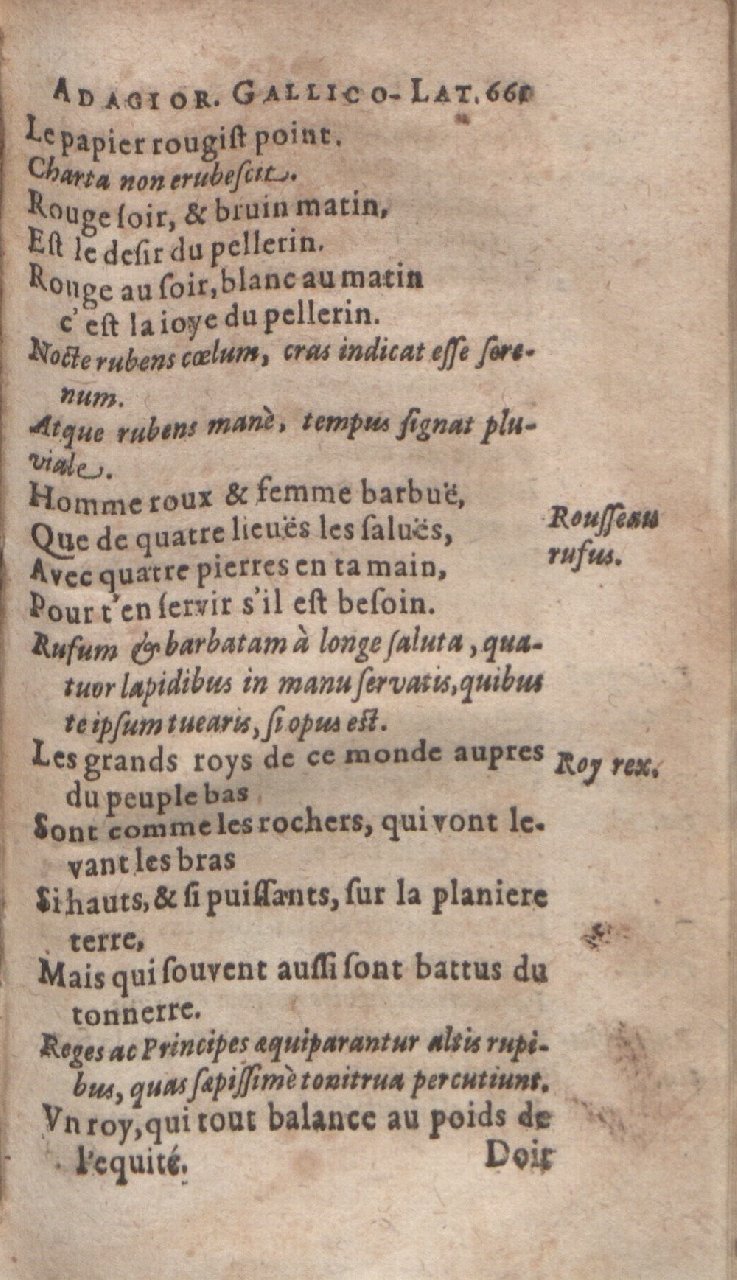 ADAGIOR. GALLICO-LAT. 661
Le papier rougiſt point.
Charta non erubeſcit.
Rouge ſoir, & bruin matin,
Eſt le deſir du pellerin.
Rouge au ſoir, blanc au matin
c'eſt la ioye du pellerin.
Nocte rubens cœlum, cras indicat eſſe ſere-
num.
Atque rubens manè, tempus ſignat plu-
viale.
Homme roux & femme barbuë,
Que de quatre lieuës les ſaluës,
Rouſſeau
Avec quatre pierres en ta main,
rufus.
Pour t'en ſervir s'il eſt beſoin.
Rufum & barbatam à longe ſaluta, qua-
tuor lapidibus in manu ſervatis, quibus
te ipſum tuearis, ſi opus eſt.
Les grands roys de ce monde aupres
Roy rex.
du peuple bas
Sont comme les rochers, qui vont le-
vant les bras
Si hauts, & ſi puiſſants, ſur la planiere
terre,
Mais qui ſouvent auſſi ſont battus du
tonnerre.
Reges ac Principes æquiparantur altis rupi-
bus, quas ſæpiſſimè tonitrua percutiunt.
Vn roy, qui tout balance au poids de
l'equité.
Doit